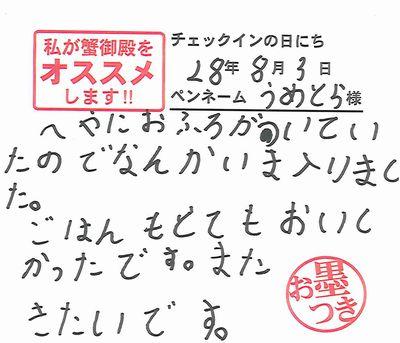 私が蟹御殿を
オススメ
します!!
チェックインの日にち
28年8月3日
ペンネーム うめとら様
へやにおふろがついてい
たのでなんかいも入りまし
た。
ごはんもとてもおいし
かったです。また
きたいです。
お墨つき